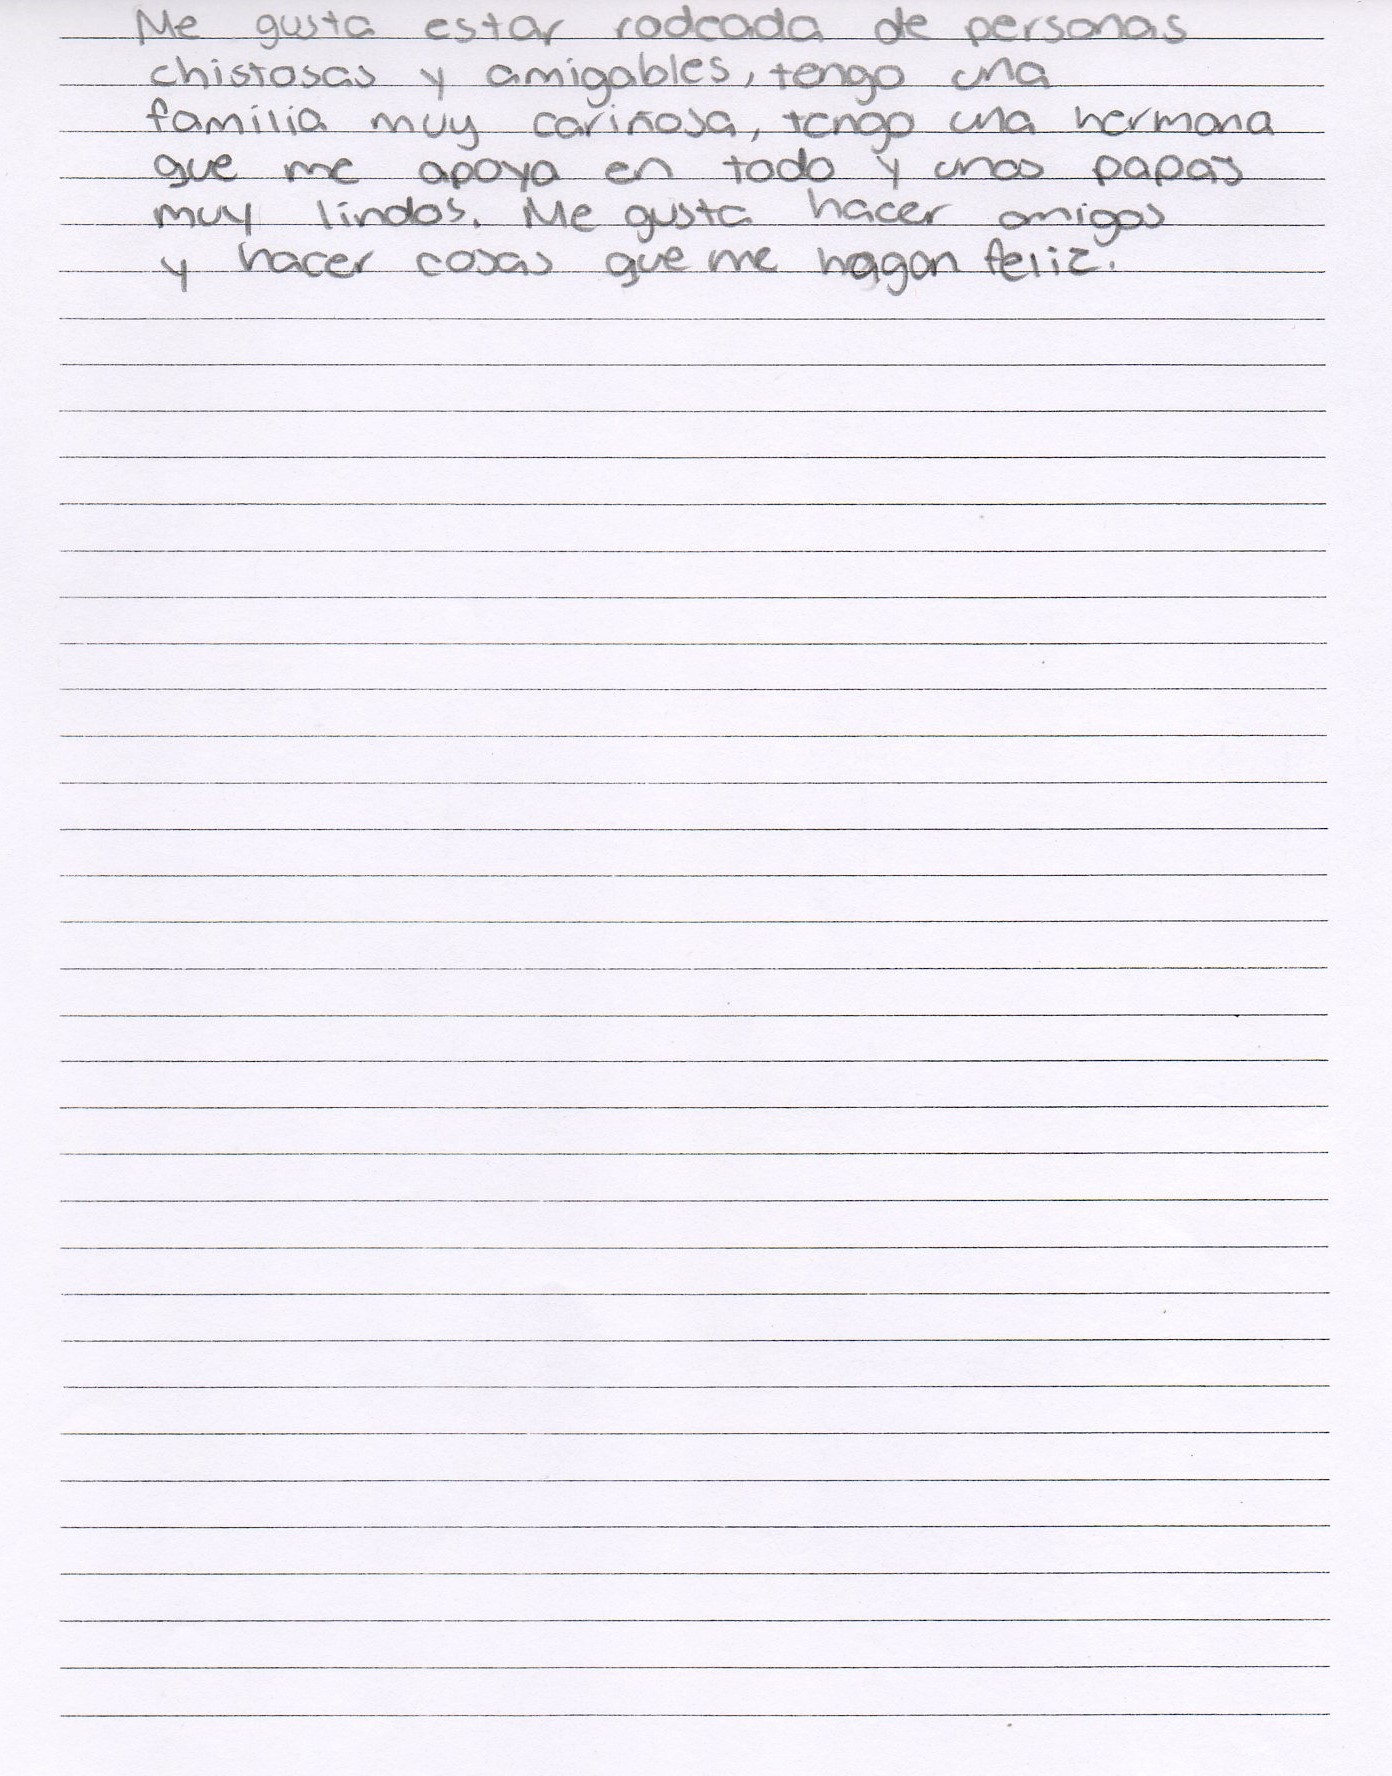 Me gusta estar rodeada de personas
chistosas y amigables, tengo una
familia muy cariñosa, tengo una hermana
que me apoya en todo y unos papas
muy lindos. Me gusta hacer amigos
y hacer cosas que me hagan feliz.